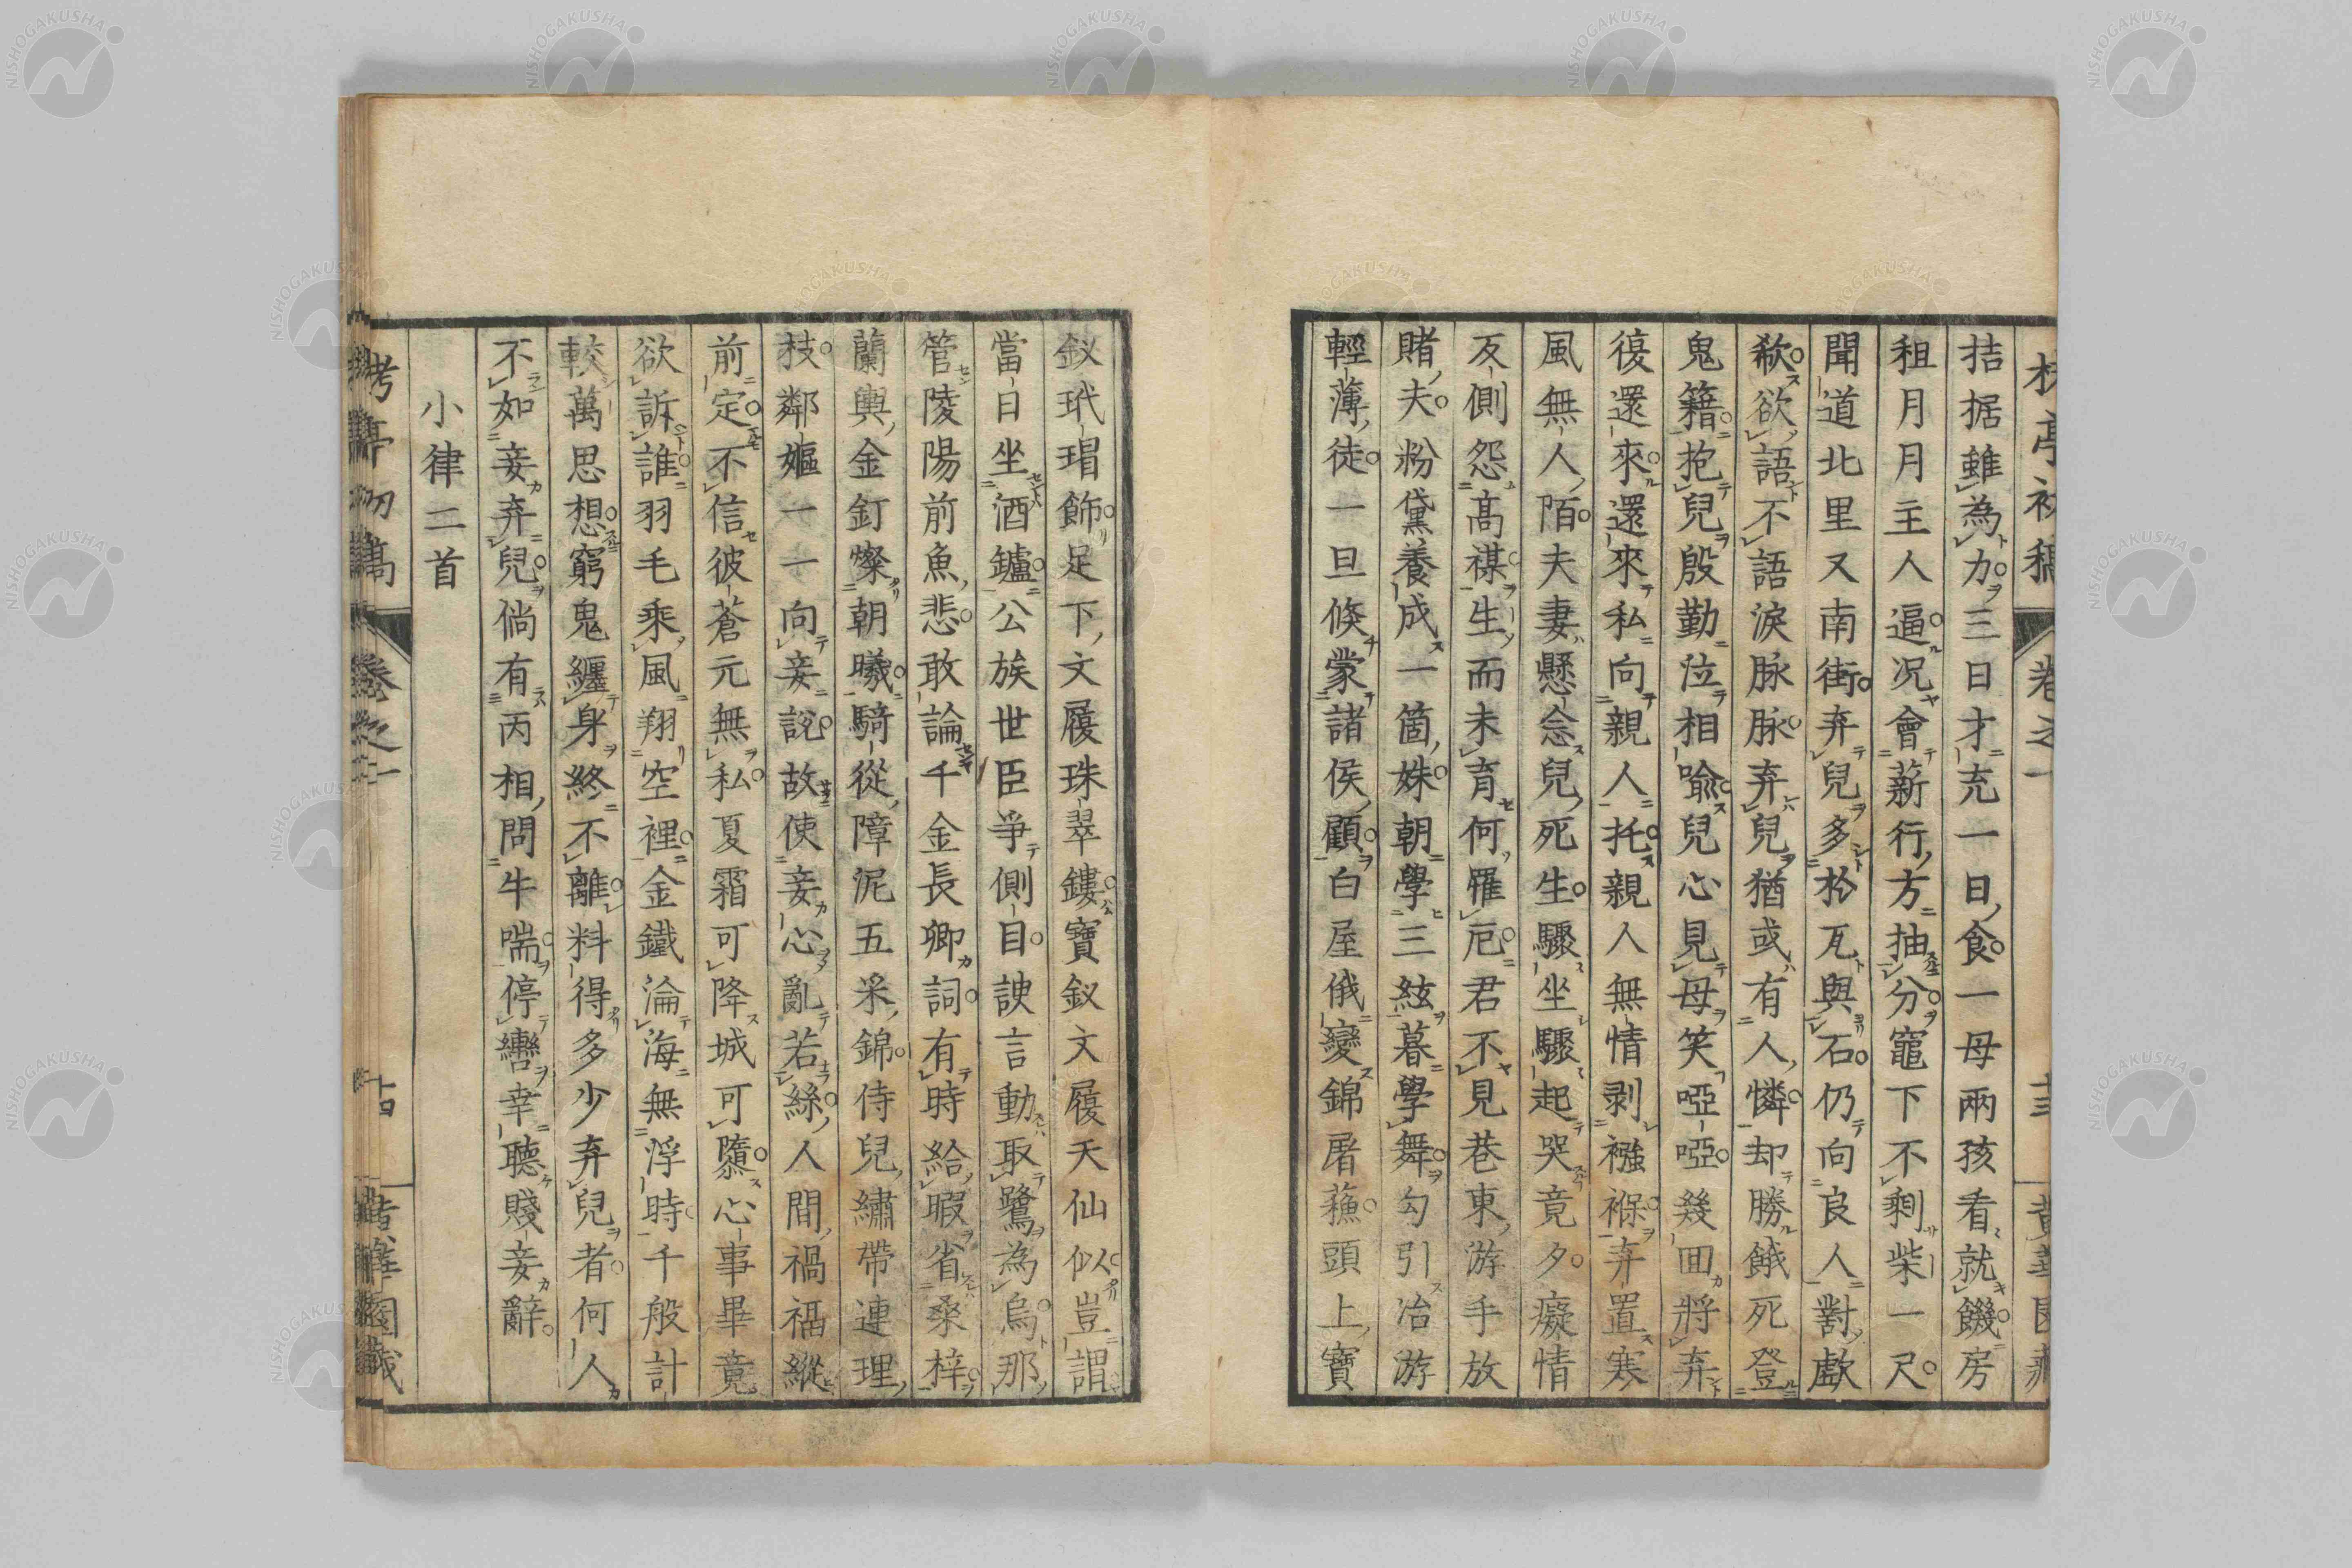 拮据雖為力三日才充一日食一母兩孩看就饑房
租月月主人逼況會薪行方抽分竈下不剩柴一尺
聞道北里又南街弃兒多於瓦與石仍向良人對歔
欷欲語不語淚脉脉弃兒猶或有人憐却勝餓死登
鬼籍抱兒殷勤泣相喩兒心見母笑啞啞幾回將弃
復還來還來私向親人托親人無情剥襁褓弃置寒
風無人陌夫妻懸念兒死生驟坐驟起哭竟夕癡情
反側怨高禖生而未育何罹厄君不見巷東游手放
賭夫粉黛養成一箇姝朝學三絃暮學舞勾引冶游
輕薄徒一旦倏蒙諸侯顧白屋俄變錦屠蘓頭上寶
釵玳瑁飾足下文履珠翠鏤寶釵文履天仙似豈謂
當日坐酒鑪公族世臣爭側目諛言動取鷺為烏那
管陵陽前魚悲敢論千金長卿詞有時給暇省桑梓
蘭輿金釘燦朝曦騎從障泥五采錦侍兒繡帶連理
枝鄰嫗一一向妾說故使妾心亂若絲人間禍福縱
前定不信彼蒼元無私夏霜可降城可隳心事畢竟
欲訴誰羽毛乘風翔空裡金鐵淪海無浮時千般計
較萬思想窮鬼纏身終不離料得多少弃兒者何人
不如妾弃兒倘有丙相問牛喘停轡幸聽賤妾辭
小律二首
卷之一
十四